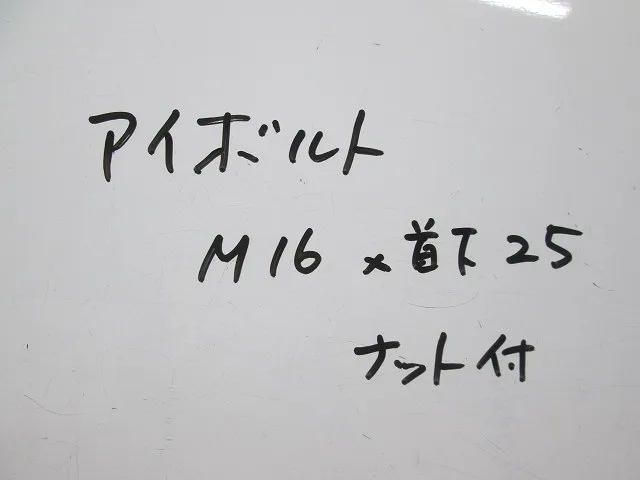 アイボルト
M16×首下25
ナット付